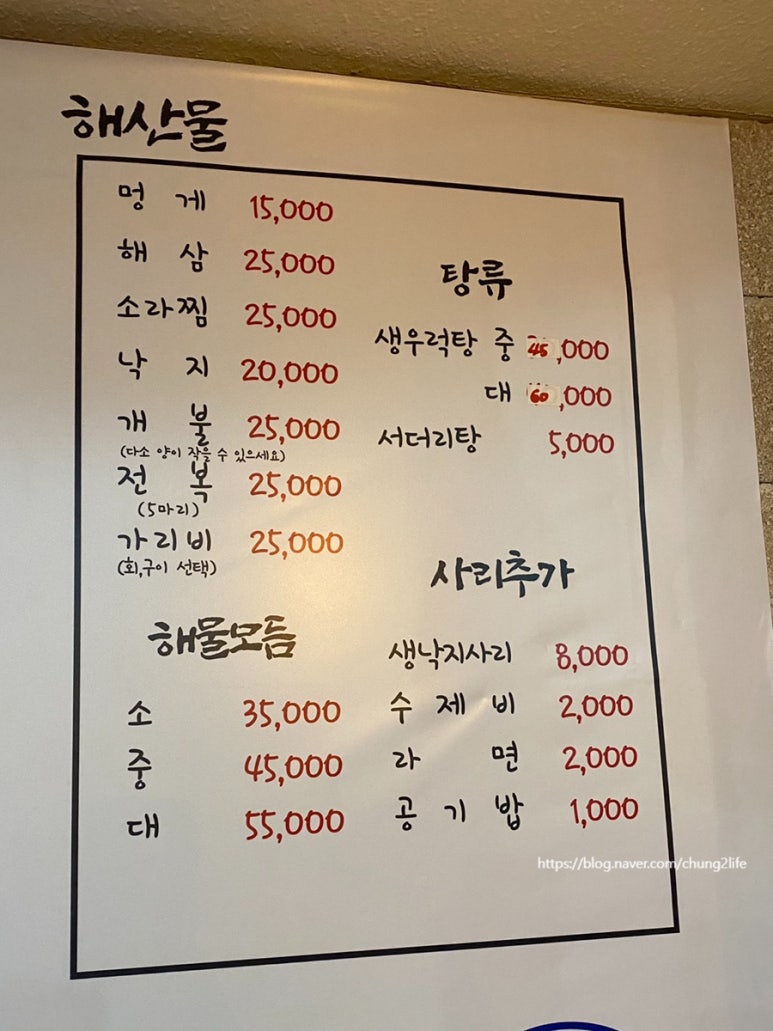 해산물
멍게 15,000
해삼 25,000
소라찜 25,000
낙지 20,000
개불 25,000
(다소 양이 작을 수 있으세요)
전복 25,000
(5마리)
가리비 25,000
(회,구이 선택)
해물모듬
소 35,000
중 45,000
대 55,000
탕류
생우럭탕 중 45,000
대 60,000
서더리탕 5,000
사리추가
생낙지사리 8,000
수제비 2,000
라면 2,000
공기밥 1,000
https://blog.naver.com/chung2life